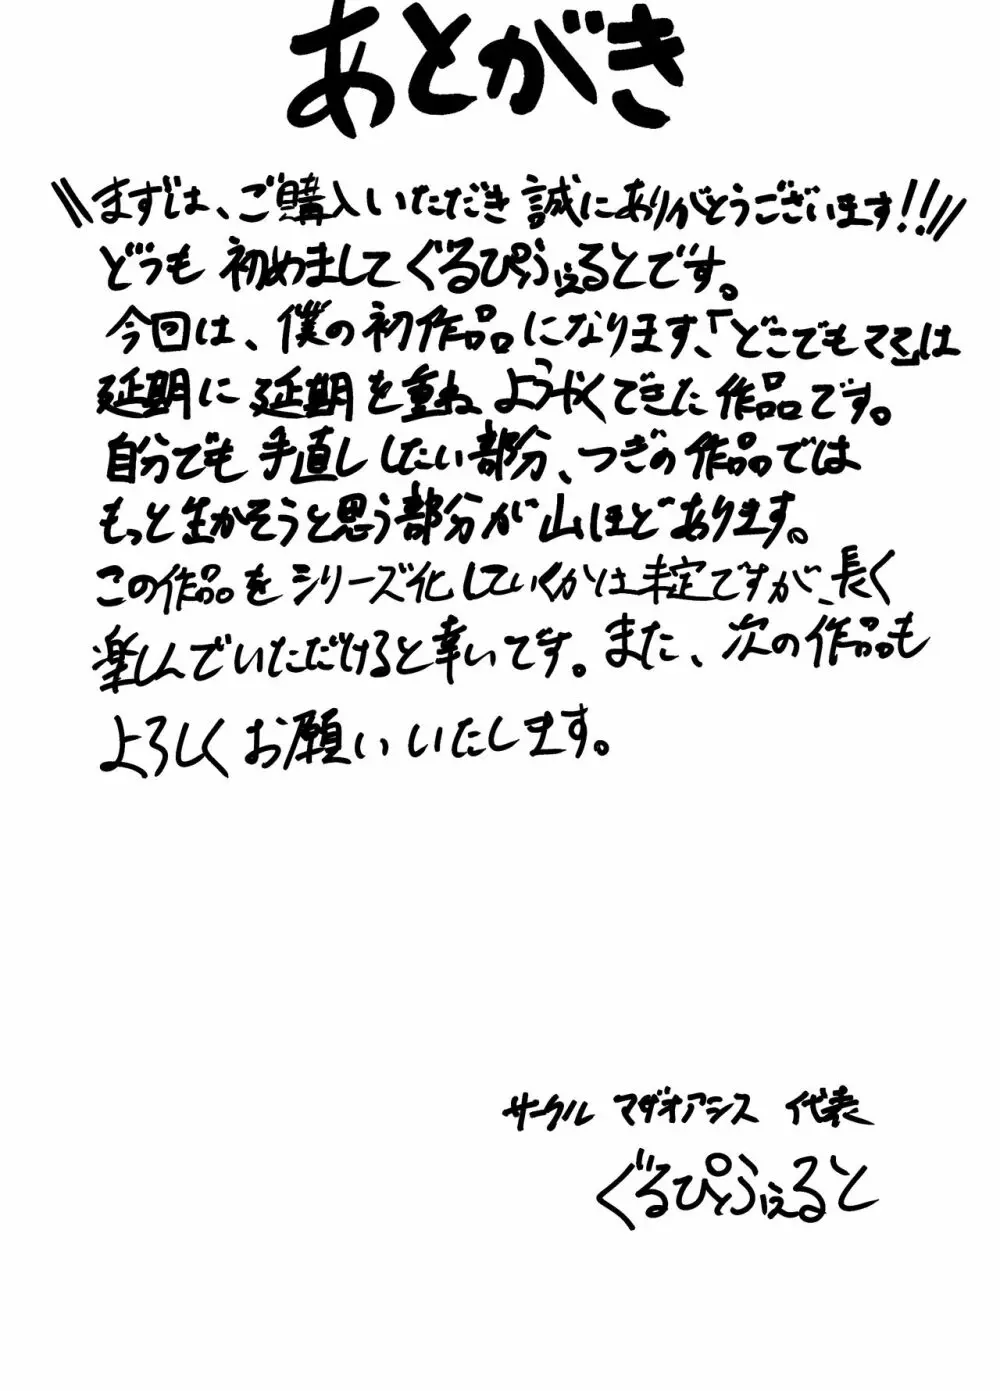 あとがき
まずは、ご購入いただき誠にありがとうございます!!
どうも初めましてぐるぴとふぇるとです。
今回は、僕の初作品になります、「どこでもママ」は
延期に延期を重ねようやくできた作品です。
自分でも手直ししたい部分、つぎの作品では
もっと生かそうと思う部分が山ほどあります。
この作品をシリーズ化していくかは未定ですが、長く
楽しんでいただけると幸いです。また、次の作品も
よろしくお願いいたします。
サークル マザオアシス 代表
ぐるぴとふぇると